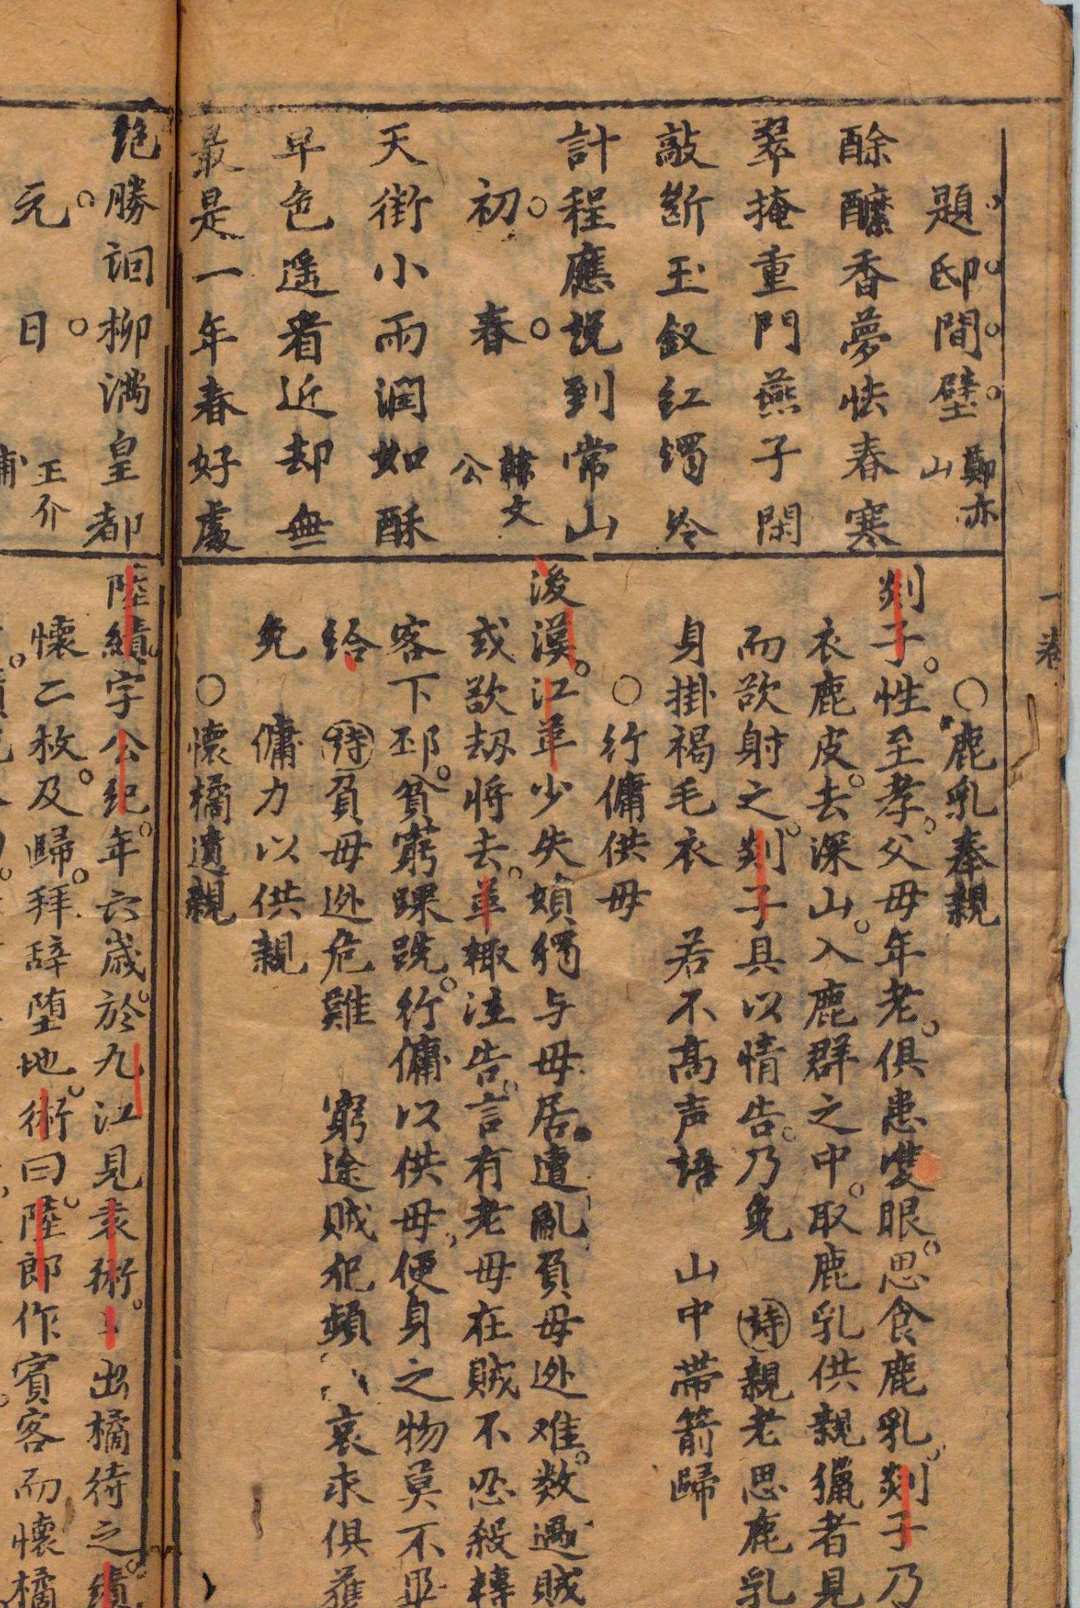 題邸間壁 鄭亦山
酴醿香夢怯春寒
翠掩重門燕子閑
敲斷玉釵紅燭冷
計程應說到常山
初春 韓文公
天街小雨潤如酥
早色遥看近却無
最是一年春好處
絶勝 柳滿皇都
元日 王介甫
○鹿乳奉親
剡子性至孝父母年老俱患雙眼思食鹿乳剡子乃
衣鹿皮去深山入鹿群之中取鹿乳供親獵者見
而欲射之剡子具以情告乃免 詩親老思鹿乳
身掛褐毛衣 若不高声語 山中帯箭歸
○行傭供母
後漢江革少失 獨与母居遭亂負母迯难数遇賊
或欲刼將去革輙泣告言有老母在賊不忍殺轉
客下邳貧窮踝跣行傭以供母便身之物莫不畢
給 詩負母迯危難 窮途賊犯頻 哀求俱獲
免 傭力以供親
○懷橘遺親
陸績字公紀年六歲於九江見袁術〻出橘待之績
懷二枚及歸拜辞堕地術曰陸郎作賓客而懷橘